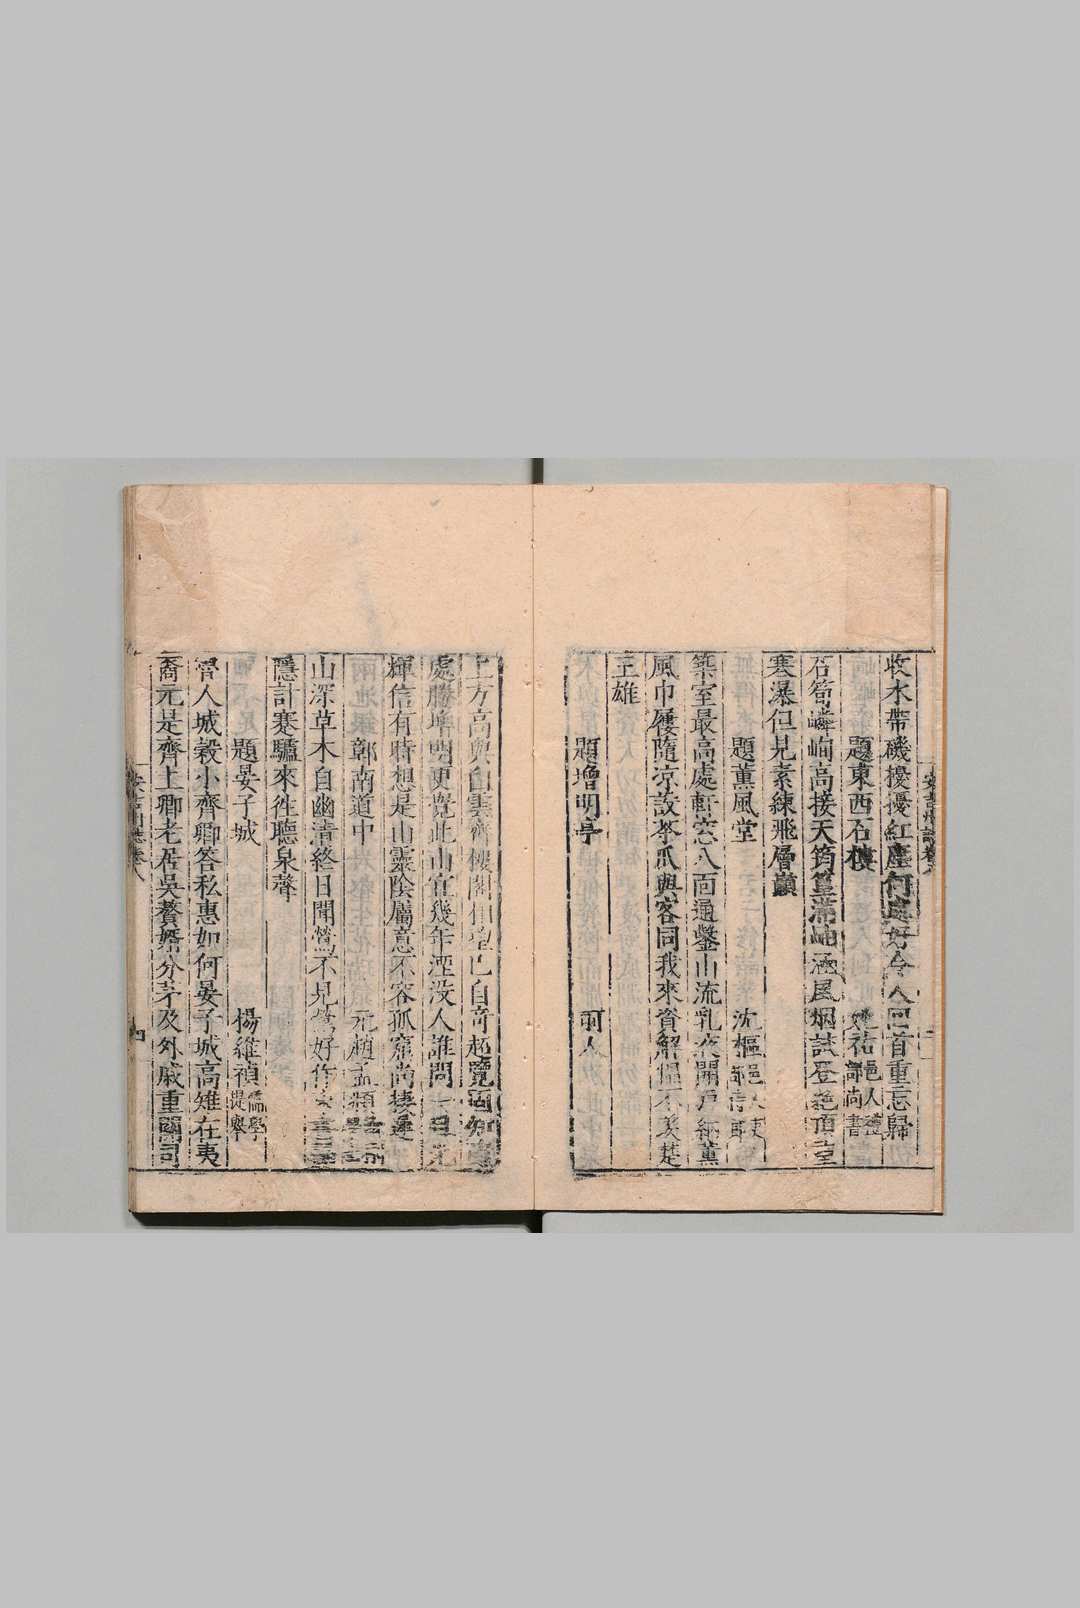 收木帶磯擾擾紅塵何處好令人回首重忘歸
題東西石樓 姚祐邑人禮部尚書
石筍嶙峋高接天筠篁滿岫涵風烟試登絶頂望
寒瀑但見素練飛層巔
題薰風堂 沈樞邑人
築室最高處軒窓八面通鑿山流乳液開戶納薰
風巾屨隨凉設苽與客同我來資解慍不羨楚
王雄
題增明亭 羽人
上方高與白雲齊樓閣自奇超覽
處勝增明更覺此山宜幾年湮没人誰問一旦光
輝信有時想是山靈陰屬意不容孤寵尚棲遲
鄣南道中 元趙孟頫
山深草木自幽清終日聞鶯不見鶯好作
隱計蹇驢來往聽泉聲
題晏子城 楊維禎儒學提舉
齊人城穀小齊卿答私惠如何晏子城高雉在夷
裔元是齊上卿老居吳贅婿分茅及外戚重關司
安吉州志卷八
四